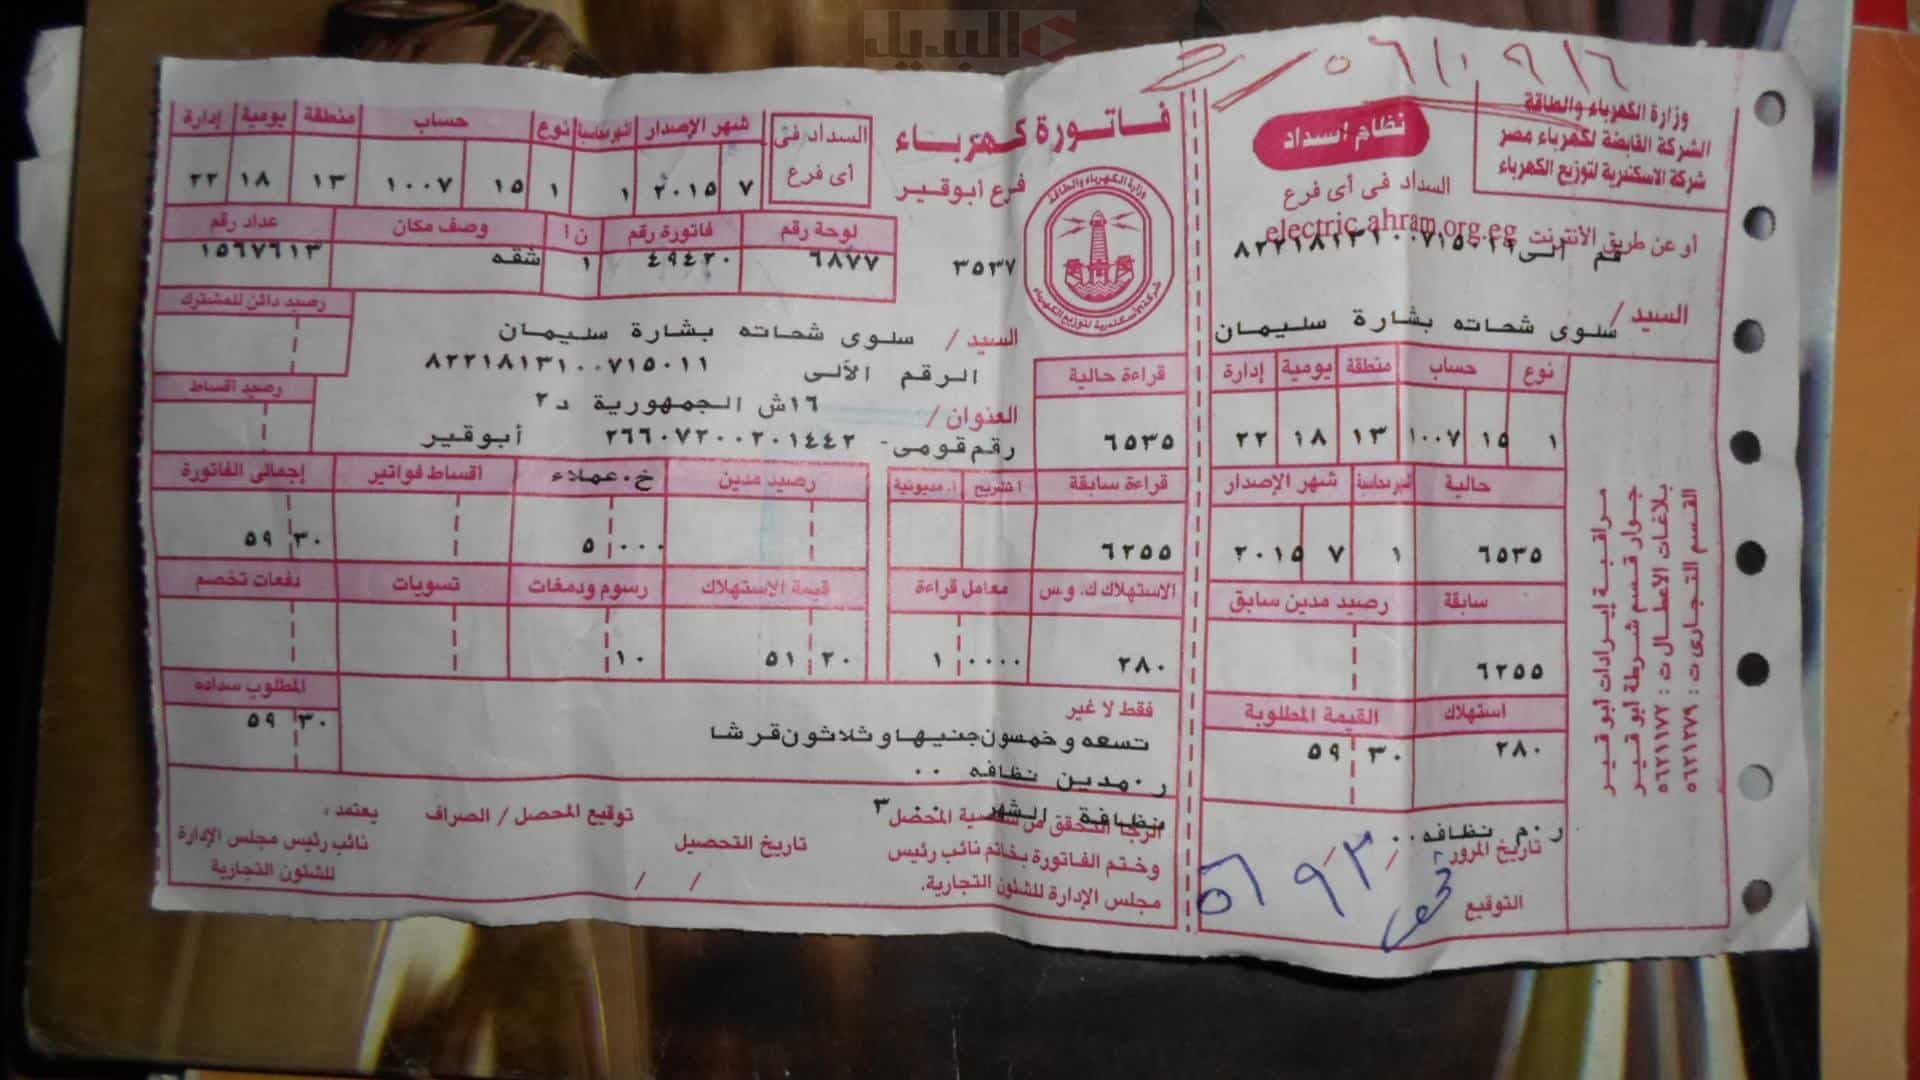 البديل
وزارة الكهرباء والطاقة
الشركة القابضة لكهرباء مصر
شركة الاسكندرية لتوزيع الكهرباء
نظام اسداد
السداد فى أى فرع
أو عن طريق الأنترنت electric.ahram.org.eg
رقم الى ٨٢٢١٨١٣١٠٠٧١٥٠١١
السيد / سلوى شحاته بشارة سليمان
نوع حساب منطقة يومية إدارة
١ ١٥ ١٠٠٧ ١٣ ١٨ ٢٢
حالية أشهر محاسبة شهر الإصدار
٦٥٣٥ ١ ٧ ٢٠١٥
سابقة رصيد مدين سابق
٦٢٥٥
استهلاك القيمة المطلوبة
٢٨٠ ٥٩ ٣٠
ر.م نظافه ٠٠
تاريخ المرور
التوقيع
مراقبة إيرادات أبو قير
جوار قسم شرطة أبو قير
بلاغات الأعطال ت : ٥٦٢١١٧٢
القسم التجارى ت : ٥٦٢١٢٧٩
فاتورة كهرباء
فرع ابوقير
السداد فى أى فرع
شهر الإصدار أشهر محاسبة نوع حساب منطقة يومية إدارة
٧ ٢٠١٥ ١ ١ ١٥ ١٠٠٧ ١٣ ١٨ ٢٢
وزارة الكهرباء والطاقة
شركة الاسكندرية لتوزيع الكهرباء
لوحة رقم فاتورة رقم ن أ وصف مكان عداد رقم
٣٥٣٧ ٦٨٧٧ ٤٩٤٢٠ ١ شقه ١٥٦٧٦١٣
رصيد دائن للمشترك
السيد / سلوى شحاته بشارة سليمان
الرقم الألى ٨٢٢١٨١٣١٠٠٧١٥٠١١
العنوان / ١٦ش الجمهورية د٢
رقم قومى- ٢٦٦٠٧٢٠٠٢٠١٤٤٢ أبوقير
رصيد اقساط
قراءة حالية
٦٥٣٥
قراءة سابقة أ.شريح أ.مديونية رصيد مدين خ.عملاء اقساط فواتير إجمالى الفاتورة
٦٢٥٥ ٥ ٠٠٠ ٥٩ ٣٠
الاستهلاك ك.و.س معامل قراءة قيمة الاستهلاك رسوم ودمغات تسويات دفعات تخصم
٢٨٠ ١ ٠٠٠٠ ٥١ ٢٠ ١٠
المطلوب سداده
٥٩ ٣٠
فقط لا غير
تسعه وخمسون جنيها وثلاثون قرشا
ر.مدين نظافه ٠٠
نظافة الشهر ٣
الرجا التحقق من شخصية المحصل
وختم الفاتورة بخاتم نائب رئيس
مجلس الإدارة للشئون التجارية.
تاريخ التحصيل / /
توقيع المحصل / الصراف
يعتمد ،
نائب رئيس مجلس الإدارة
للشئون التجارية